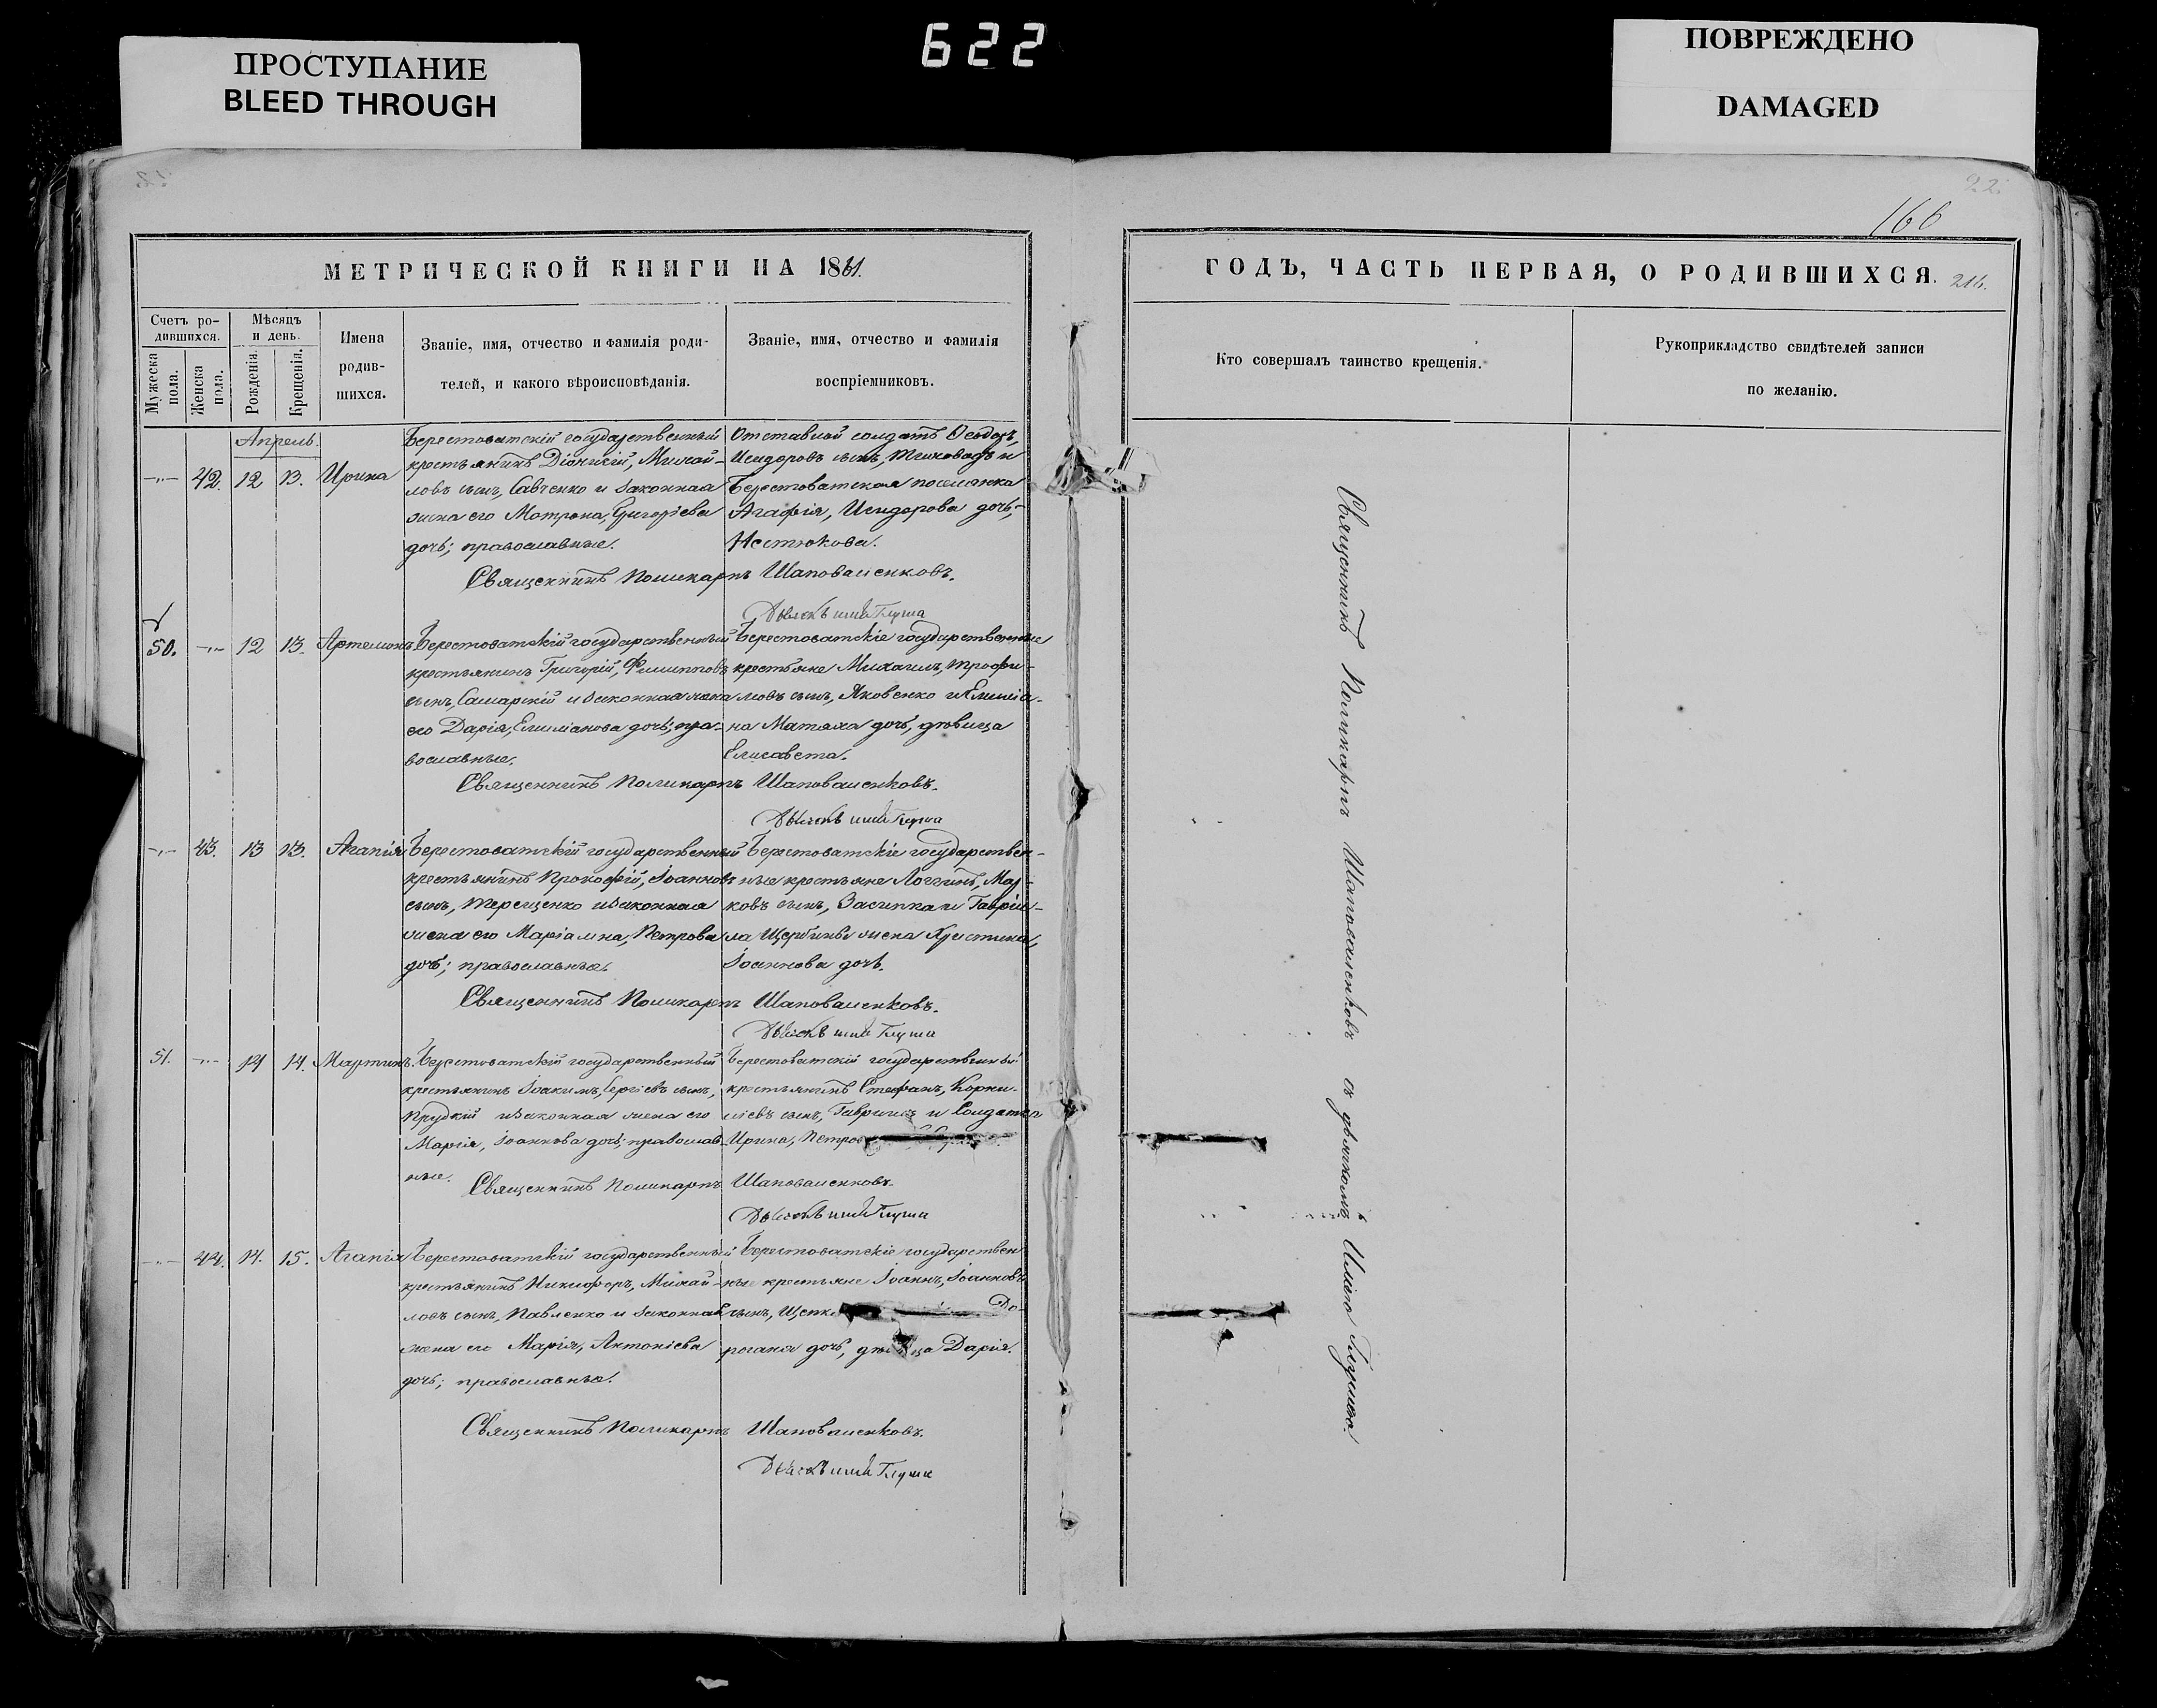 622
ПРОСТУПАНИЕ
BLEED THROUGH
ПОВРЕЖДЕНО
DAMAGED
22
166
МЕТРИЧЕСКОЙ КНИГИ НА 1861.
Счетъ ро-
дившихся.
Мужеска
пола.
Женска
пола.
Мѣсяцъ
и день.
Рожденія.
Крещенія.
Имена
родив-
шихся.
Званіе, имя, отчество и фамилія роди-
телей, и какого вѣроисповѣданія.
Званіе, имя, отчество и фамилія
воспріемниковъ.
Апрель.
42. 12 13. Ирина
Берестоватскій государственный
крестьянинъ Діонисій, Михай-
ловъ сынъ, Савченко и законная
жена его Матрона, Григоріева
дочь; православные.
Отставной солдатъ Ѳеодоръ,
Исидоровъ сынъ, и
Берестоватская поселянка
Агафія, Исидорова дочь,
Нестюкова.
Священникъ Поликарпъ Шаповаленковъ.
Дьячекъ Илія Глуша
50. 12 13. Артемонъ
Берестоватскій государственный
крестьянинъ Григорій, Филипповъ
сынъ, Самарскій и законная жена
его Дарія, Емиліанова дочь; пра-
вославные.
Берестоватскіе государственные
крестьяне Михаилъ, Трофи-
мовъ сынъ, Яковенко и Емилія-
на Матяха дочь, дѣвица
Елисавета.
Священникъ Поликарпъ Шаповаленковъ.
Дьячекъ Илія Глуша
43. 13 13. Агапія
Берестоватскій государственный
крестьянинъ Прокофій, Іоанновъ
сынъ, Терещенко и законная
жена его Маріамна, Петрова
дочь; православные.
Берестоватскіе государствен-
ные крестьяне Логгинъ, Мар-
ковъ сынъ, Засипка и Гаврии-
ла Щербины жена Христина,
Іоаннова дочь.
Священникъ Поликарпъ Шаповаленковъ.
Дьячекъ Илія Глуша
51. 14 14. Мартинъ.
Берестоватскій государственный
крестьянинъ Іоакимъ, Сергіевъ сынъ,
Прудкій и законная жена его
Марія, Іоаннова дочь; православ-
ные.
Берестоватскій государственный
крестьянинъ Стефанъ, Корни-
ліевъ сынъ, Гавришъ и Солдатка
Ирина, Петров
Священникъ Поликарпъ Шаповаленковъ.
Дьячекъ Илія Глуша
44. 14. 15. Агапія
Берестоватскій государственный
крестьянинъ Никифоръ, Михай-
ловъ сынъ, Павленко и законная
жена его Марія, Антоніева
дочь; православные.
Берестоватскіе государствен-
ные крестьяне Іоаннъ, Іоанновъ
сынъ, Щепк До-
рогана дочь, дѣвица Дарія.
Священникъ Поликарпъ Шаповаленковъ.
Дьячекъ Илія Глуша
ГОДЪ, ЧАСТЬ ПЕРВАЯ, О РОДИВШИХСЯ. 216.
Кто совершалъ таинство крещенія.
Рукоприкладство свидѣтелей записи
по желанію.
Священникъ Поликарпъ Шаповаленковъ съ дьячкомъ Иліею Глушею.